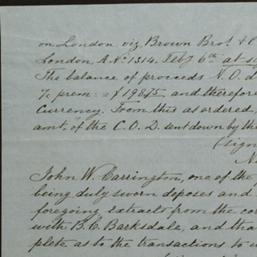 on London viz Brown Bro's & C
London A. No. 1514. Feby 6th at si
The balance of proceeds N.O. d
% prem: of 198.75, and therefore
Currency. From this as ordered,
amt, of the C.O.D. sent down by th
(Sign
John W. Carrington, one of the
being duly sworn deposes and
foregoing extracts from the cor
with B.C. Barksdale, and tha
plete as to the transactions to w